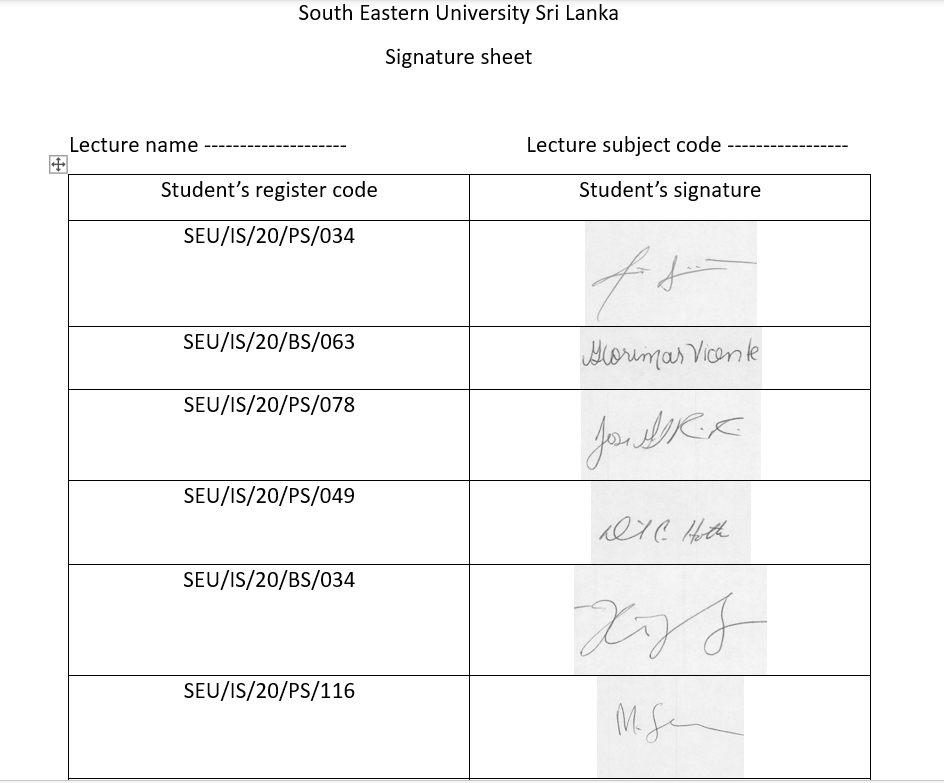 South Eastern University Sri Lanka
Signature sheet
Lecture name -------------------- Lecture subject code -----------------
Student’s register code Student’s signature
SEU/IS/20/PS/034
SEU/IS/20/BS/063 Glorimar Vicente
SEU/IS/20/PS/078
SEU/IS/20/PS/049
SEU/IS/20/BS/034
SEU/IS/20/PS/116